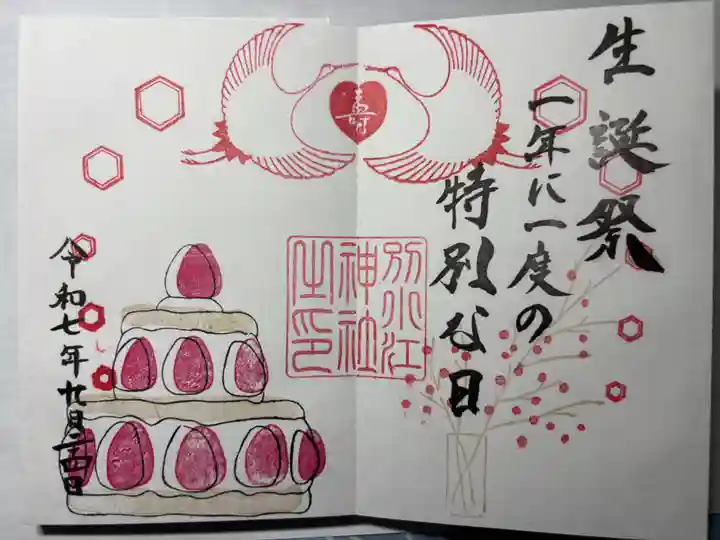 生誕祭
一年に一度の
特別な日
壽
別小江
神社
之印
令和七年九月日